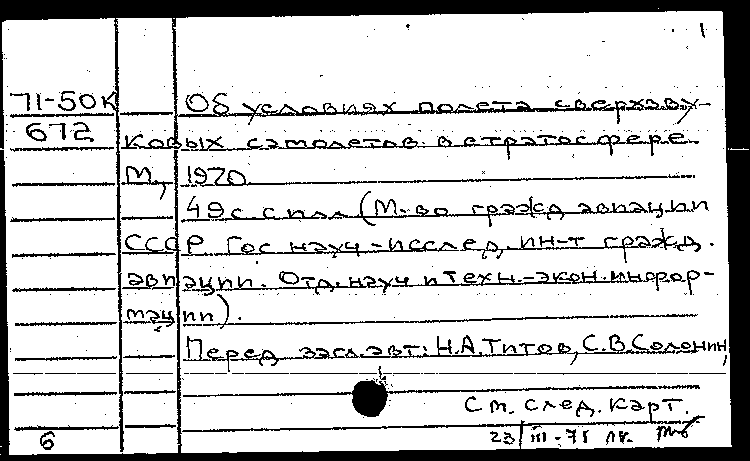 1
71-50К Об условиях полета сверхзву-
672 ковых самолетов в стратосфере.
М., 1970
49 с. с илл (М-во гражд авиации
СССР. Гос науч-исслед. ин-т гражд.
авиации. Отд. науч и техн.-экон. инфор-
мации).
Перед загл. авт: Н.А. Титов, С.В. Солонин,
См. след. карт.
6 23/III-71 лк.